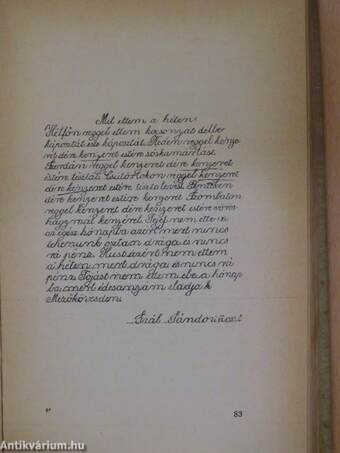 Mit ettem a héten
Hétfőn reggel ettem kocsonyát délbe
káposztát este káposztát. Kedden reggel kenye
ret délre kenyeret estére sóskamártást.
Szerdán reggel kenyeret délre kenyeret
estére tésztát. Csütörtökön reggel kenyeret
délre kenyeret estére tészta levest. Pénteken
délre kenyeret estére kenyeret. Szombaton
reggel kenyeret délre kenyeret estére vörös
hagymát kenyeret. Tejet nem ettem
az egész hónapba azért mert nincs
tehenünk osztán drága és nincs
rá pénz. Húst azért nem ettem
a héten mert drága és nincs rá
pénz. Tojást nem ettem ebbe a hónap
ba mert édesanyám eladja k
Mezőkövesden.
Gaál Sándor
6*
83
Antikvárium.hu